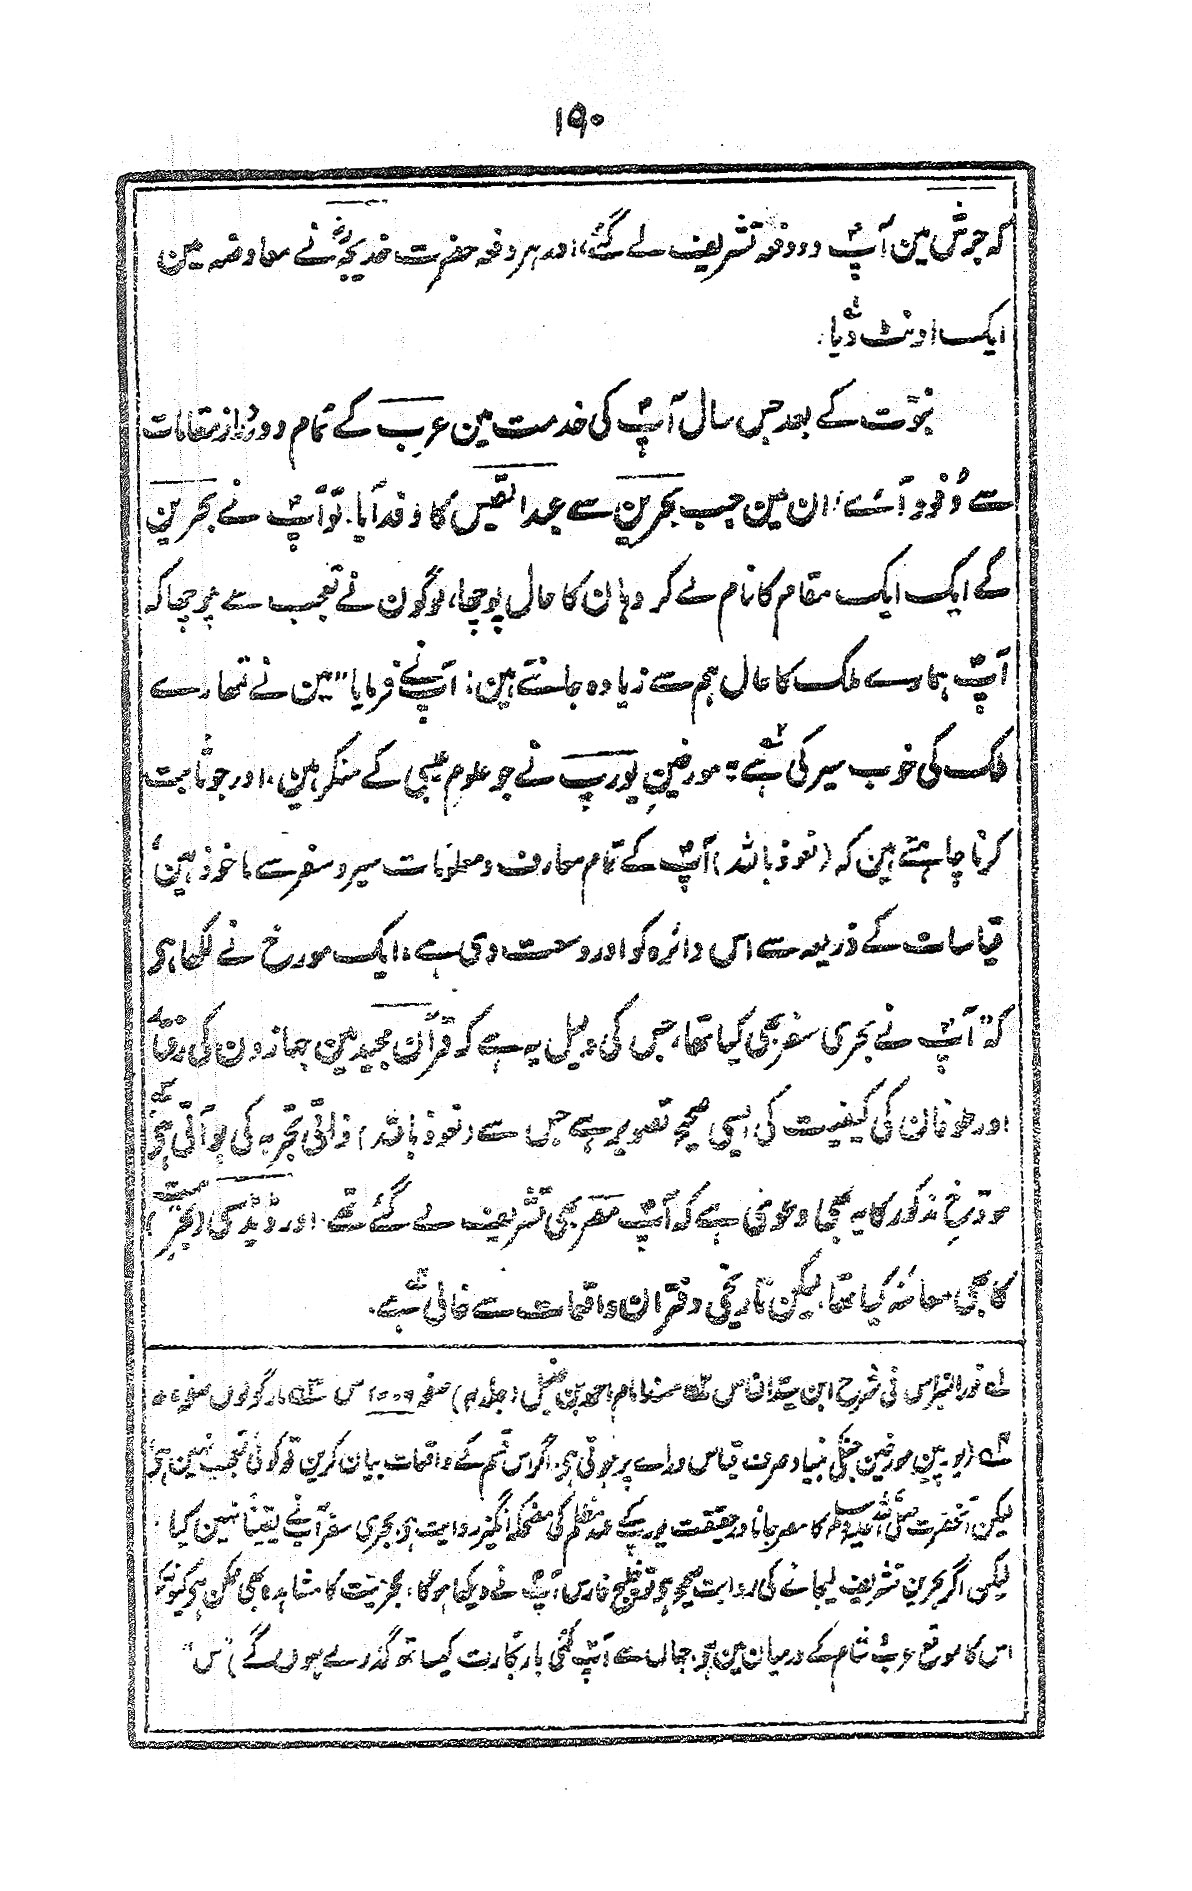 ۱۹۰
کہ جرش مین آپؐ دو دفعہ تشریف لے گئے، اور ہر دفعہ حضرت خدیجہؓ نے معاوضہ مین
ایک اونٹ دیا۔
نبوت کے بعد جس سال آپؐ کی خدمت مین عرب کے تمام دور دراز مقامات
سے وُفود آئے، ان مین جب بحرین سے عبد القیس کا وفد آیا۔ تو آپؐ نے بحرین
کے ایک ایک مقام کا نام لے کر وہان کا حال پوچھا، لوگون نے تعجب سے پوچھا کہ
آپؐ ہمارے ملک کا حال ہم سے زیادہ جانتے ہین؛ آپؐ نے فرمایا "مین نے تمھارے
ملک کی خوب سیر کی ہے"؛ مورخینِ یورپ نے جو علوم غیبی کے منکر ہین، اور جو ثابت
کرنا چاہتے ہین کہ (نعوذ باللہ) آپؐ کے تمام معارف و معلومات سیر و سفر سے ماخوذ ہین،
قیاسات کے ذریعہ سے اس دائرہ کو اور وسعت دی ہے، ایک مورخ نے لکھا ہی
کہ "آپؐ نے بحری سفر بھی کیا تھا، جس کی دلیل یہ ہے کہ قرآن مجید مین جہازون کی رفتار
اور طوفان کی کیفیت کی ایسی صحیح تصویر ہے جس سے (نعوذ باللہ) ذاتی تجربہ کی بو آتی ہی
مورخ مذکور کا یہ بھی دعوی ہے کہ آپؐ مصر بھی تشریف لے گئے تھے۔ اور ڈیڈسی (بحر میت)
کا بھی معائنہ کیا تھا، لیکن تاریخی دفتر ان واقعات سے خالی ہے۔
لے نور النبراس فی شرح ابن سید الناس ٢ہ مسند امام احمد بن حنبل (جلد ۴) صفحہ ۲۰۶ س ٣ہ مارگولوس صفحہ
٤ہ (یورپین مورخین جنکی بنیاد صرف قیاس و رائے پر ہوتی ہی، اگر اس قسم کے واقعات بیان کرین تو کوئی تعجب نہین ہی
لیکن آنحضرت صلی اللہ علیہ وسلم کا مصر جانا در حقیقت یورپ کے عہد مظلم کی مضحکہ انگیز روایت ہی، بحری سفر آپؐ نے یقیناً نہین کیا
لیکن اگر بحرین تشریف لیجانے کی روایت صحیح ہو تو خلیج فارس آپؐ نے دیکھا ہوگا، بحر میت کا مشاہدہ بھی ممکن ہی کیونکہ
اس کا موقع عرب شام کے درمیان مین ہی، جہاں سے آپؐ کئی بار تجارت کیساتھ گذرے ہوں گے) "س"